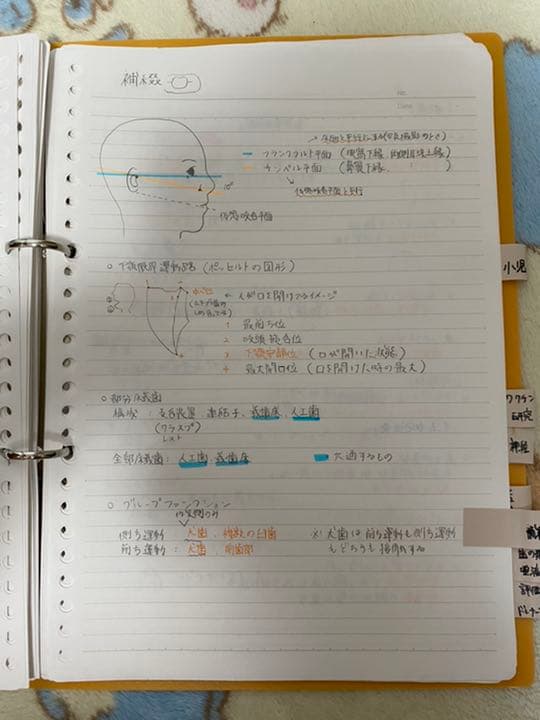 補綴
No.
Date
フランクフルト平面 (眼窩下縁、両側耳珠上縁)
カンペル平面 (鼻翼下縁、〃)
10°
仮想咬合平面と平行
仮想咬合平面
○ 下顎限界運動路 (ポッセルトの図形)
← 人が口を開けてるイメージ
1 最前方位
2 咬頭嵌合位
3 下顎安静位 (口が開いた状態)
4 最大開口位 (口を開けた時の最大)
○ 部分床義歯
構成: 支台装置、連結子、義歯床、人工歯
(クラスプ
レスト
全部床義歯: 人工歯、義歯床
共通するもの
○ グループファンクション
作業側のみ
側方運動 犬歯、複数の臼歯
※ 犬歯は前方運動も側方運動
前方運動: 犬歯、前歯部
もどちらも接触する
小児
ワクチン
研究
神経
評価